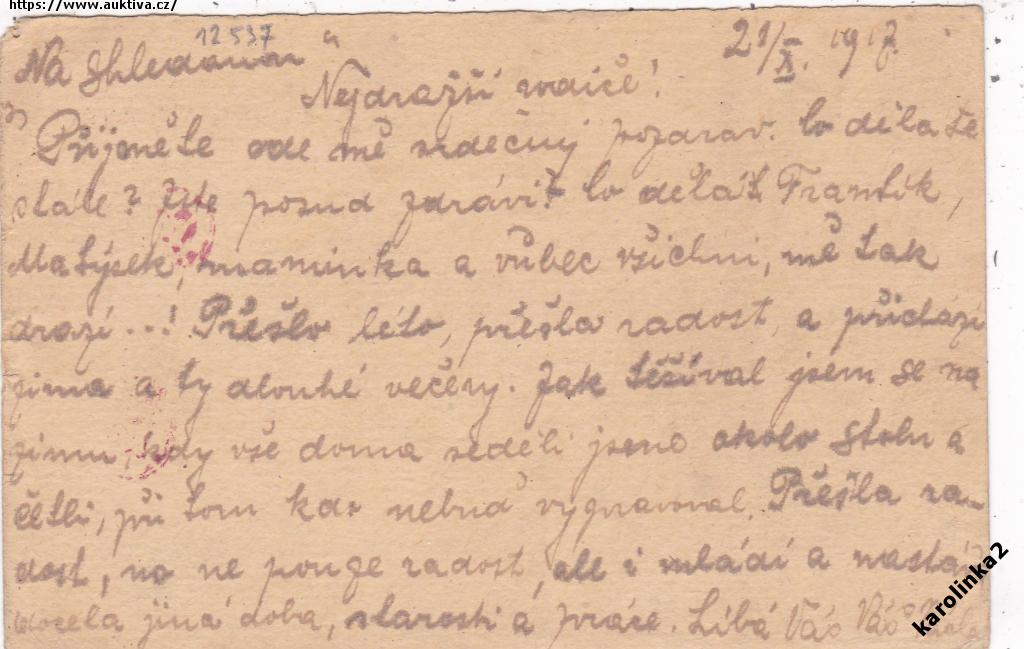 https://www.auktiva.cz/
12537
Na shledanou"
21/X. 1917.
Nejdražší rodiče!
Přijměte ode mě srdečný pozdrav. Co děláte
stále? Jste posud zdrávi? Co dělá Frantík,
Matýsek, maminka a vůbec všichni, mě tak
drazí...! Přešlo léto, přešla radost, a přichází
zima a ty dlouhé večery. Jak těšíval jsem se na
zimu, kdy vše doma seděli jsme okolo stolu a
četli, při tom kdo nebuď vypravoval. Přešla ra-
dost, no ne pouze radost, ale i mládí a nastává
docela jiná doba, starosti a práce. Líbá Vás Váš
karolinka2